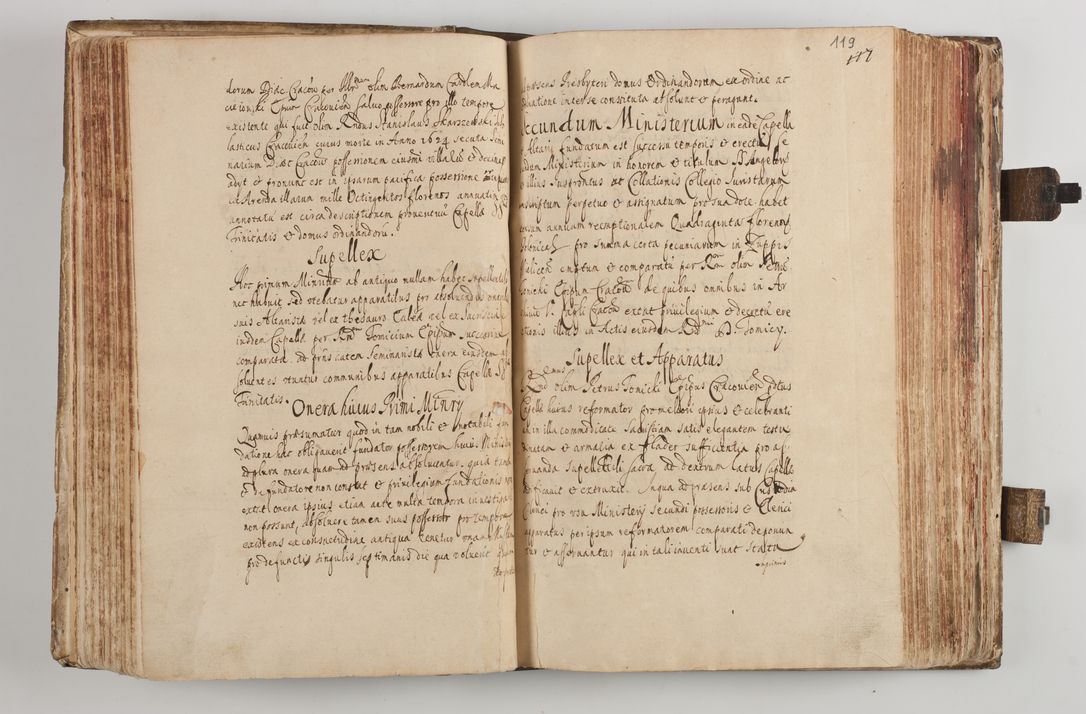 dorum Diac. Cracov per Illrm olim Bernardum
Episcopum Cracovien Salvo possessore pro illo tempore
existente qui fuit olim Rndus Stanislaus Skarszewski
lasticus Cracovien cuius morte in Anno 1624 secuta Semi
narium Diaec Cracov possessionem eiusmodi villae et decimae
adyt et pronunc est in ipsarum pacifica possessione
et Arenda illarum mille Octingentos florenos annuatim
annotatu est circa descriptionem proventuu Capellae SS
Trinitatis et domus ordinandoru.
Supellex
Hoc primum Minrium ab antiquo nullam habet supellectile
nec habuit sed utebatur apparatibus pro absolvendis
suis Altarista vel ex thesauro vel ex
eiusdem Capellae per Rndm Tomicium Epipum
comparata. ad pns autem Seminarista onera eiusdem ab
solventes utuntur communibus apparatibus Capellae SS
Trinitatis.
Onera huius Primi Minry
Quamvis praesumatur quod in tam nobili et notabili fun
datione hac obligaverit fundator possessorem huius Ministerii
ad plura onera quam ad praesens absolvuntur, quia tamen
et de fundatore non constat et privilegium fundationis non
extat onera ipsius etiam ante multa tempora investigari
non possunt, absolvere tamen suus possessor pro tempore
existens ex consuetudine antiqua tenetur unam Missam
pro defunctis singulis septimanis die qua voluerit
119
117
Presbyteri domus Ordinandorum ex ordine ac
inter se constituta absolvunt et peragunt.
Secundum Ministerium in eade Capella
et Altari fundatum est successu temporis et erectu
idem Ministerium in honorem et titulum SS Angelorum
illius Juspatrontus ac Collationis Collegio Juristarum
ascriptum perpetuo et assignatum pro sua dote habet
censum annuum receptionalem Quadraginta florenos
Polonicales pro summa certa pecuniarum in Zuppis
emptum et comparatu per Rdm olim
Tomicki Epipum Cracov de quibus omnibus in Ar
chivio V. Capli Cracov extat privilegium et decretu ere
ctionis illius in Actis eiusdem Rdmi D. Tomicy.
Supellex et Apparatus
Rndemus olim Petrus Tomicki Epipus Cracovien
Capellae huius reformator pro meliori ipsius et celebranti
in illa commoditate Sacristiam satis elegantem testu
dinatam et armalia ex sufficientia pro as
servanda supellectili sacra ad dextrum latus Capellae
aedificavit et extruxit. In qua ad praesens sub Custodia
Clerici pro usu Ministery secundi possessoris et Clerici
apparatus per ipsum reformatorem comparati deponun
tur et asservantur qui in tali inventi sunt Statu
inprimis